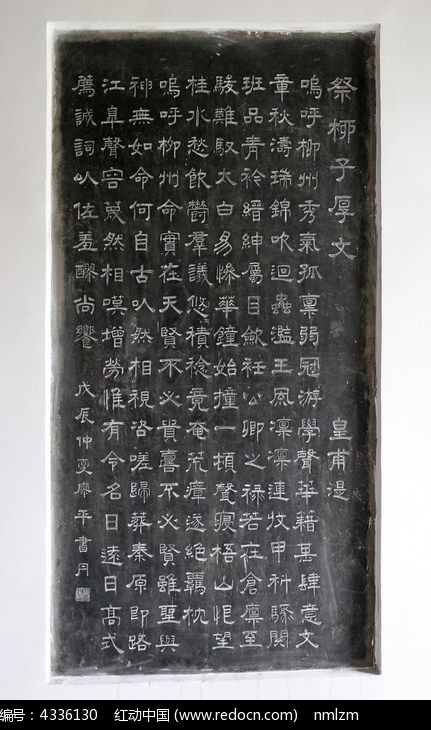 祭柳子厚文
皇甫湜
嗚呼柳州秀氣孤稟弱冠游學聲華籍甚肆意文
章秋濤瑞錦吹迴蟲濫王風凜凜連收甲科驟閱
班品青衿縉紳屬目斂衽公卿之祿若在倉廩至
駿難馭太白易慘華鐘始撞一頓聲寢梧山恨望
桂水愁飲鬱群議悠積稔竟奄荒瘴遂絕羈枕
嗚呼柳州命實在天賢不必貴喜不必賢雖聖與
神無如命何自古以然相視咨嗟歸葬秦原即路
江皐聲容蔑然相嘆增勞惟有令名日遠日高式
薦誠詞以佐羞醪尚饗
戊辰仲夏廖平書丹
编号：4336130 红动中国 (www.redocn.com) nmlzm